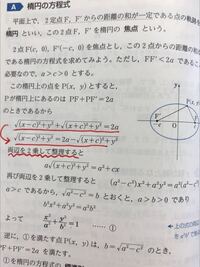 A 楕円の方程式
平面上で，2定点F，F'からの距離の和が一定である点の軌
楕円 といい，この2点F，F'を楕円の 焦点 という。
2点F(c, 0)，F'(-c, 0)を焦点とし，この2点からの距離の和
である楕円の方程式を求めてみよう。ただし，FF'<2a であるこ
必要なので，a>c>0 とする。
この楕円上の点をP(x, y)とすると，
Pが楕円上にあるのは PF+PF'=2a
のときだから
√(x-c)²+y²+√(x+c)²+y²=2a
√(x-c)²+y²=2a-√(x+c)²+y²
両辺を2乗して整理すると
a√(x+c)²+y²=a²+cx
再び両辺を2乗して整理すると (a²-c²)x²+a²y²=a²(a²-c²)
a>c であるから，√a²-c²=b とおくと，a>b>0 であり
b²x²+a²y²=a²b²
よって x²/a²+y²/b²=1 ……①
逆に，①を満たす点P(x, y)は，b=√a²-c² のとき，
PF+PF'=2a を満たす。
①を楕円の方程式